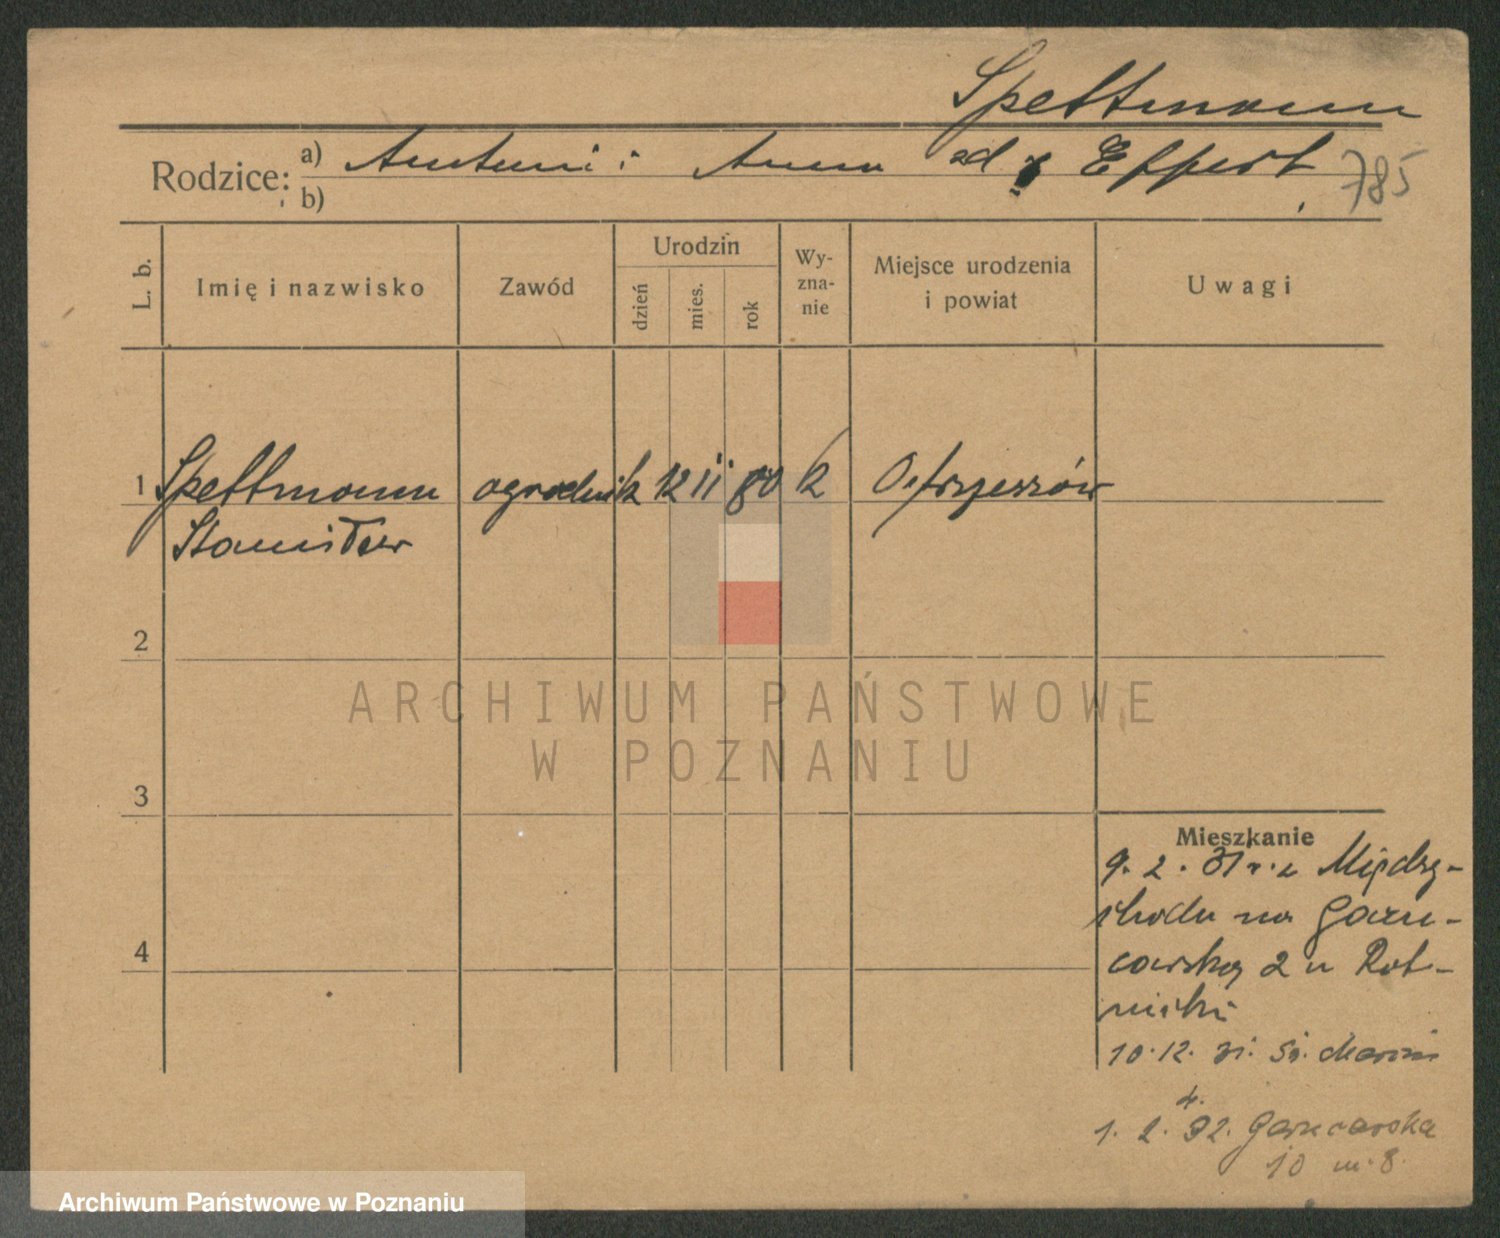 Spettmann
Rodzice: a) Antoni i Anna zd Effert
b)
785
L. b.
Imię i nazwisko
Zawód
Urodzin
dzień
mies.
rok
Wy-
zna-
nie
Miejsce urodzenia
i powiat
Uwagi
1 Spettmann ogrodnik 12 11 80 k Ostrzeszów
Stanisław
2
3
4
Mieszkanie
9. 2. 31 r. z Między-
chodu na Garn-
carską 2 u Rat-
10. 12. 31. Św. Marcin
4.
1. 2. 32. Garncarska
10 m. 8.
ARCHIWUM PAŃSTWOWE
W POZNANIU
Archiwum Państwowe w Poznaniu